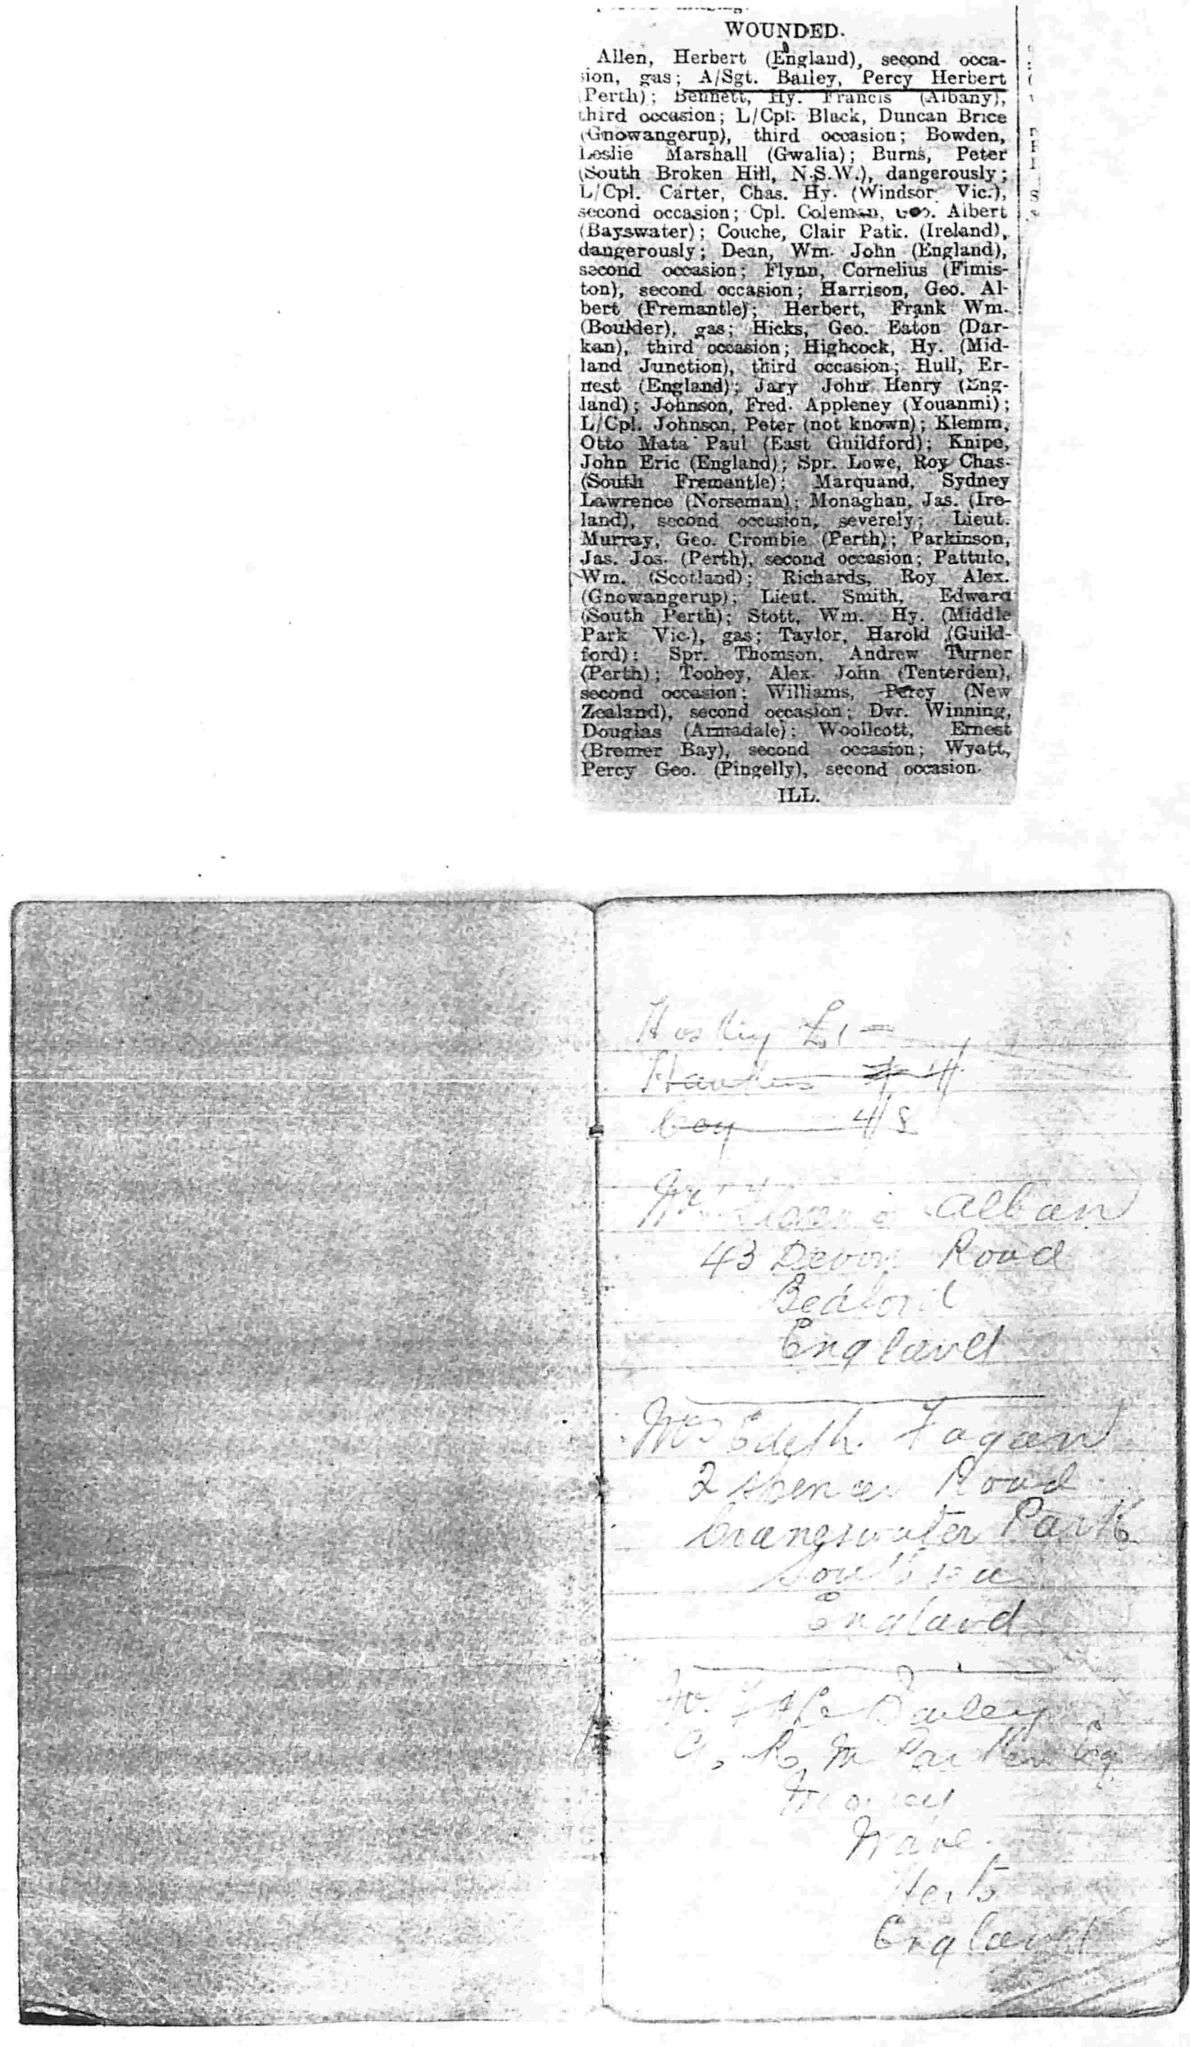 WOUNDED.
Allen, Herbert (England), second occa-
sion, gas; A/Sgt. Bailey, Percy Herbert
(Perth); Bennett, Hy. Francis (Albany),
third occasion; L/Cpl. Black, Duncan Brice
(Gnowangerup), third occasion; Bowden,
Leslie Marshall (Gwalia); Burns, Peter
(South Broken Hill, N.S.W.), dangerously;
L/Cpl. Carter, Chas. Hy. (Windsor Vic.),
second occasion; Cpl. Coleman, Geo. Albert
(Bayswater); Couche, Clair Patk. (Ireland),
dangerously; Dean, Wm. John (England),
second occasion; Flynn, Cornelius (Fimis-
ton), second occasion; Harrison, Geo. Al-
bert (Fremantle); Herbert, Frank Wm.
(Boulder), gas; Hicks, Geo. Eaton (Dar-
kan), third occasion; Highcock, Hy. (Mid-
land Junction), third occasion; Hull, Er-
nest (England); Jary John Henry (Eng-
land); Johnson, Fred. Appleney (Youanmi);
L/Cpl. Johnson, Peter (not known); Klemm,
Otto Mata Paul (East Guildford); Knipe,
John Eric (England); Spr. Lowe, Roy Chas.
(South Fremantle); Marquand, Sydney
Lawrence (Norseman); Monaghan, Jas. (Ire-
land), second occasion, severely; Lieut.
Murray, Geo. Crombie (Perth); Parkinson,
Jas. Jos. (Perth), second occasion; Pattulo,
Wm. (Scotland); Richards, Roy Alex.
(Gnowangerup); Lieut. Smith, Edward
(South Perth); Stott, Wm. Hy. (Middle
Park Vic.), gas; Taylor, Harold (Guild-
ford); Spr. Thomson, Andrew Turner
(Perth); Toohey, Alex. John (Tenterden),
second occasion; Williams, Percy (New
Zealand), second occasion; Dvr. Winning,
Douglas (Armadale); Woollcott, Ernest
(Bremer Bay), second occasion; Wyatt,
Percy Geo. (Pingelly), second occasion.
ILL.
£1 -
4/8
Alban
43 Devon Road
Bedford
England
Mrs Edyth Fagan
2 Spencer Road
Craneswater Park
Southsea
England
Bailey
Ware
Herts
England